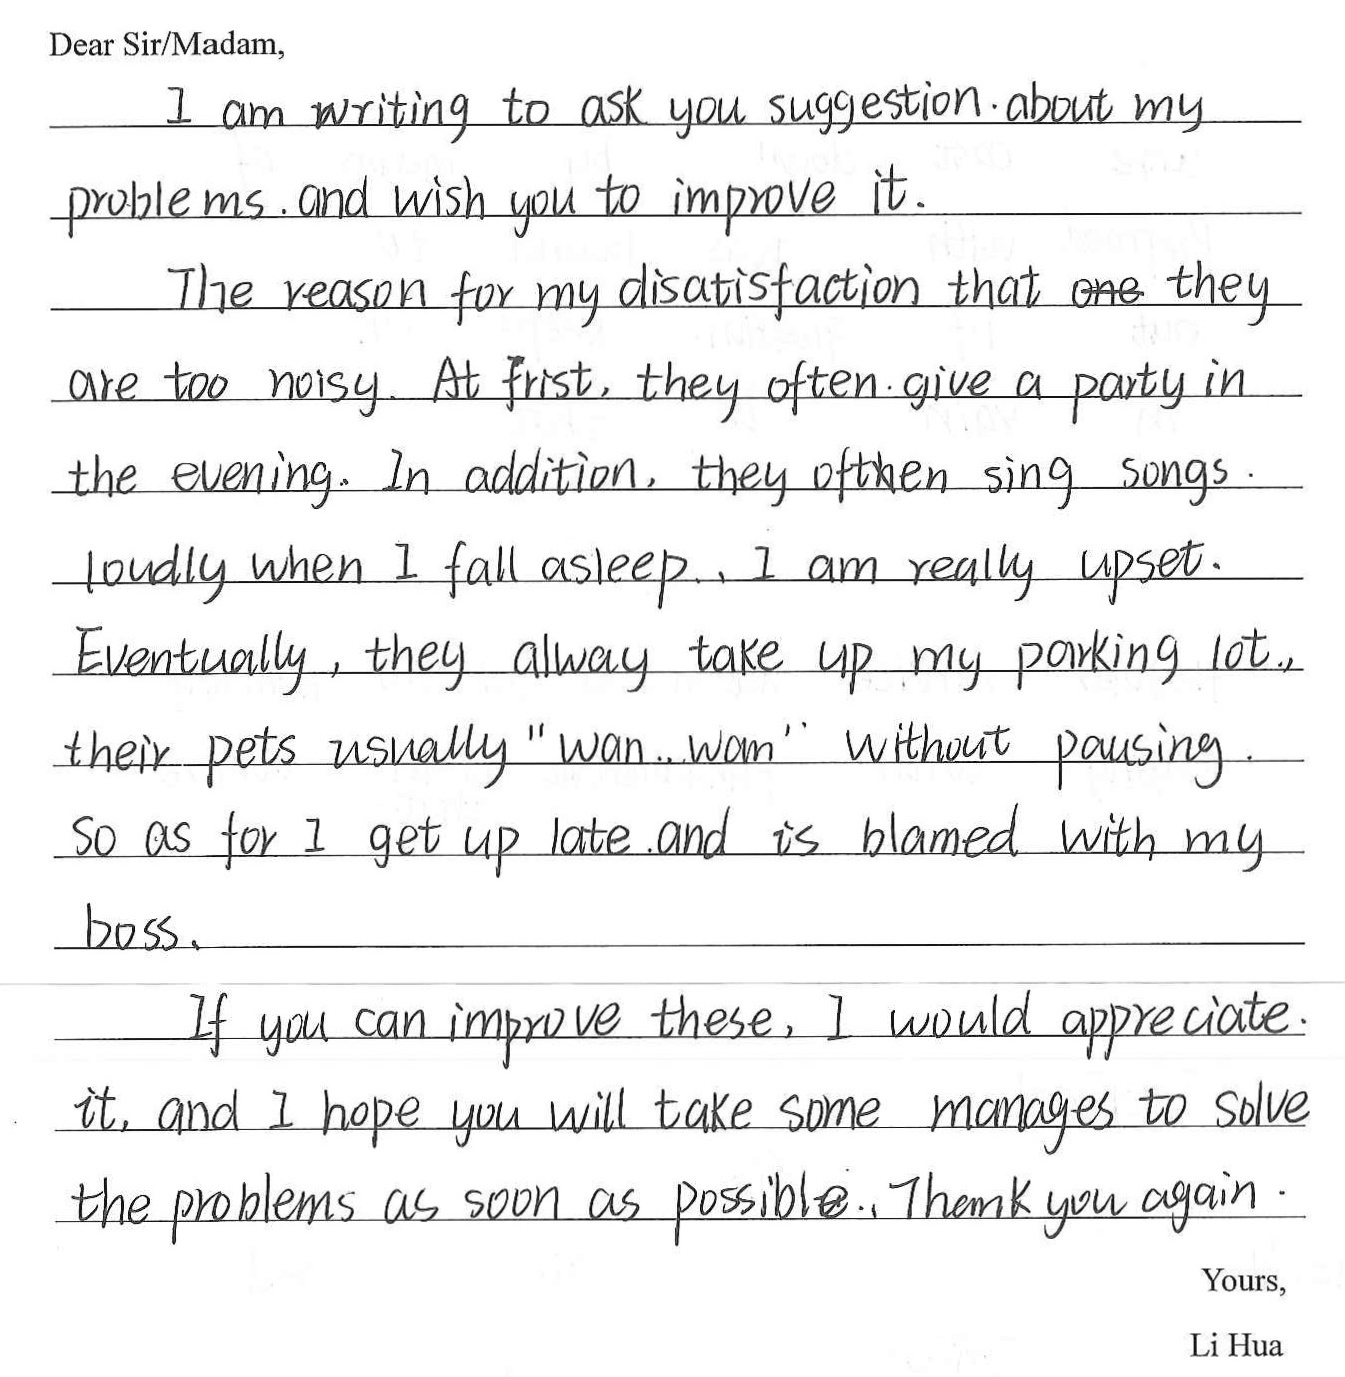 Dear Sir/Madam,
I am writing to ask you suggestion. about my
problems. and wish you to improve it.
The reason for my disatisfaction that one they
are too noisy. At frist, they often. give a party in
the evening. In addition, they ofthen sing songs.
loudly when I fall asleep., I am really upset.
Eventually, they alway take up my parking lot.,
their pets usually "wan..wan" without pausing.
so as for I get up late.and is blamed with my
boss.
If you can improve these, I would appreciate.
it, and I hope you will take some manages to solve
the problems as soon as possible., Thank you again.
Yours,
Li Hua